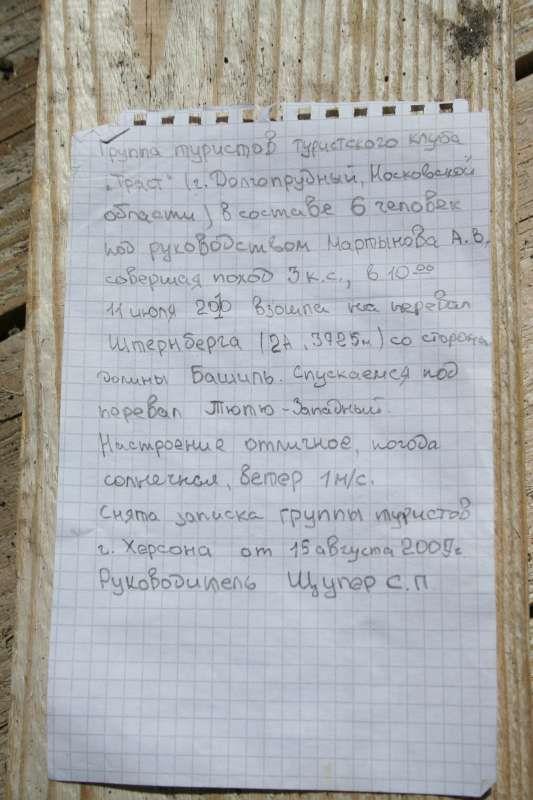 Группа туристов туристского клуба
"Траст" (г. Долгопрудный, Московской
области) в составе 6 человек
под руководством Мартынова А.В.
совершая поход 3 к.с., в 10 00
11 июля 2010 взошла на перевал
Штернберга (2А, 3925м) со стороны
долины Башиль. Спускаемся под
перевал Тютю-Западный.
Настроение отличное, погода
солнечная, ветер 1 м/с.
Снята записка группы туристов
г. Херсона от 15 августа 2009г
Руководитель Щупер С.П